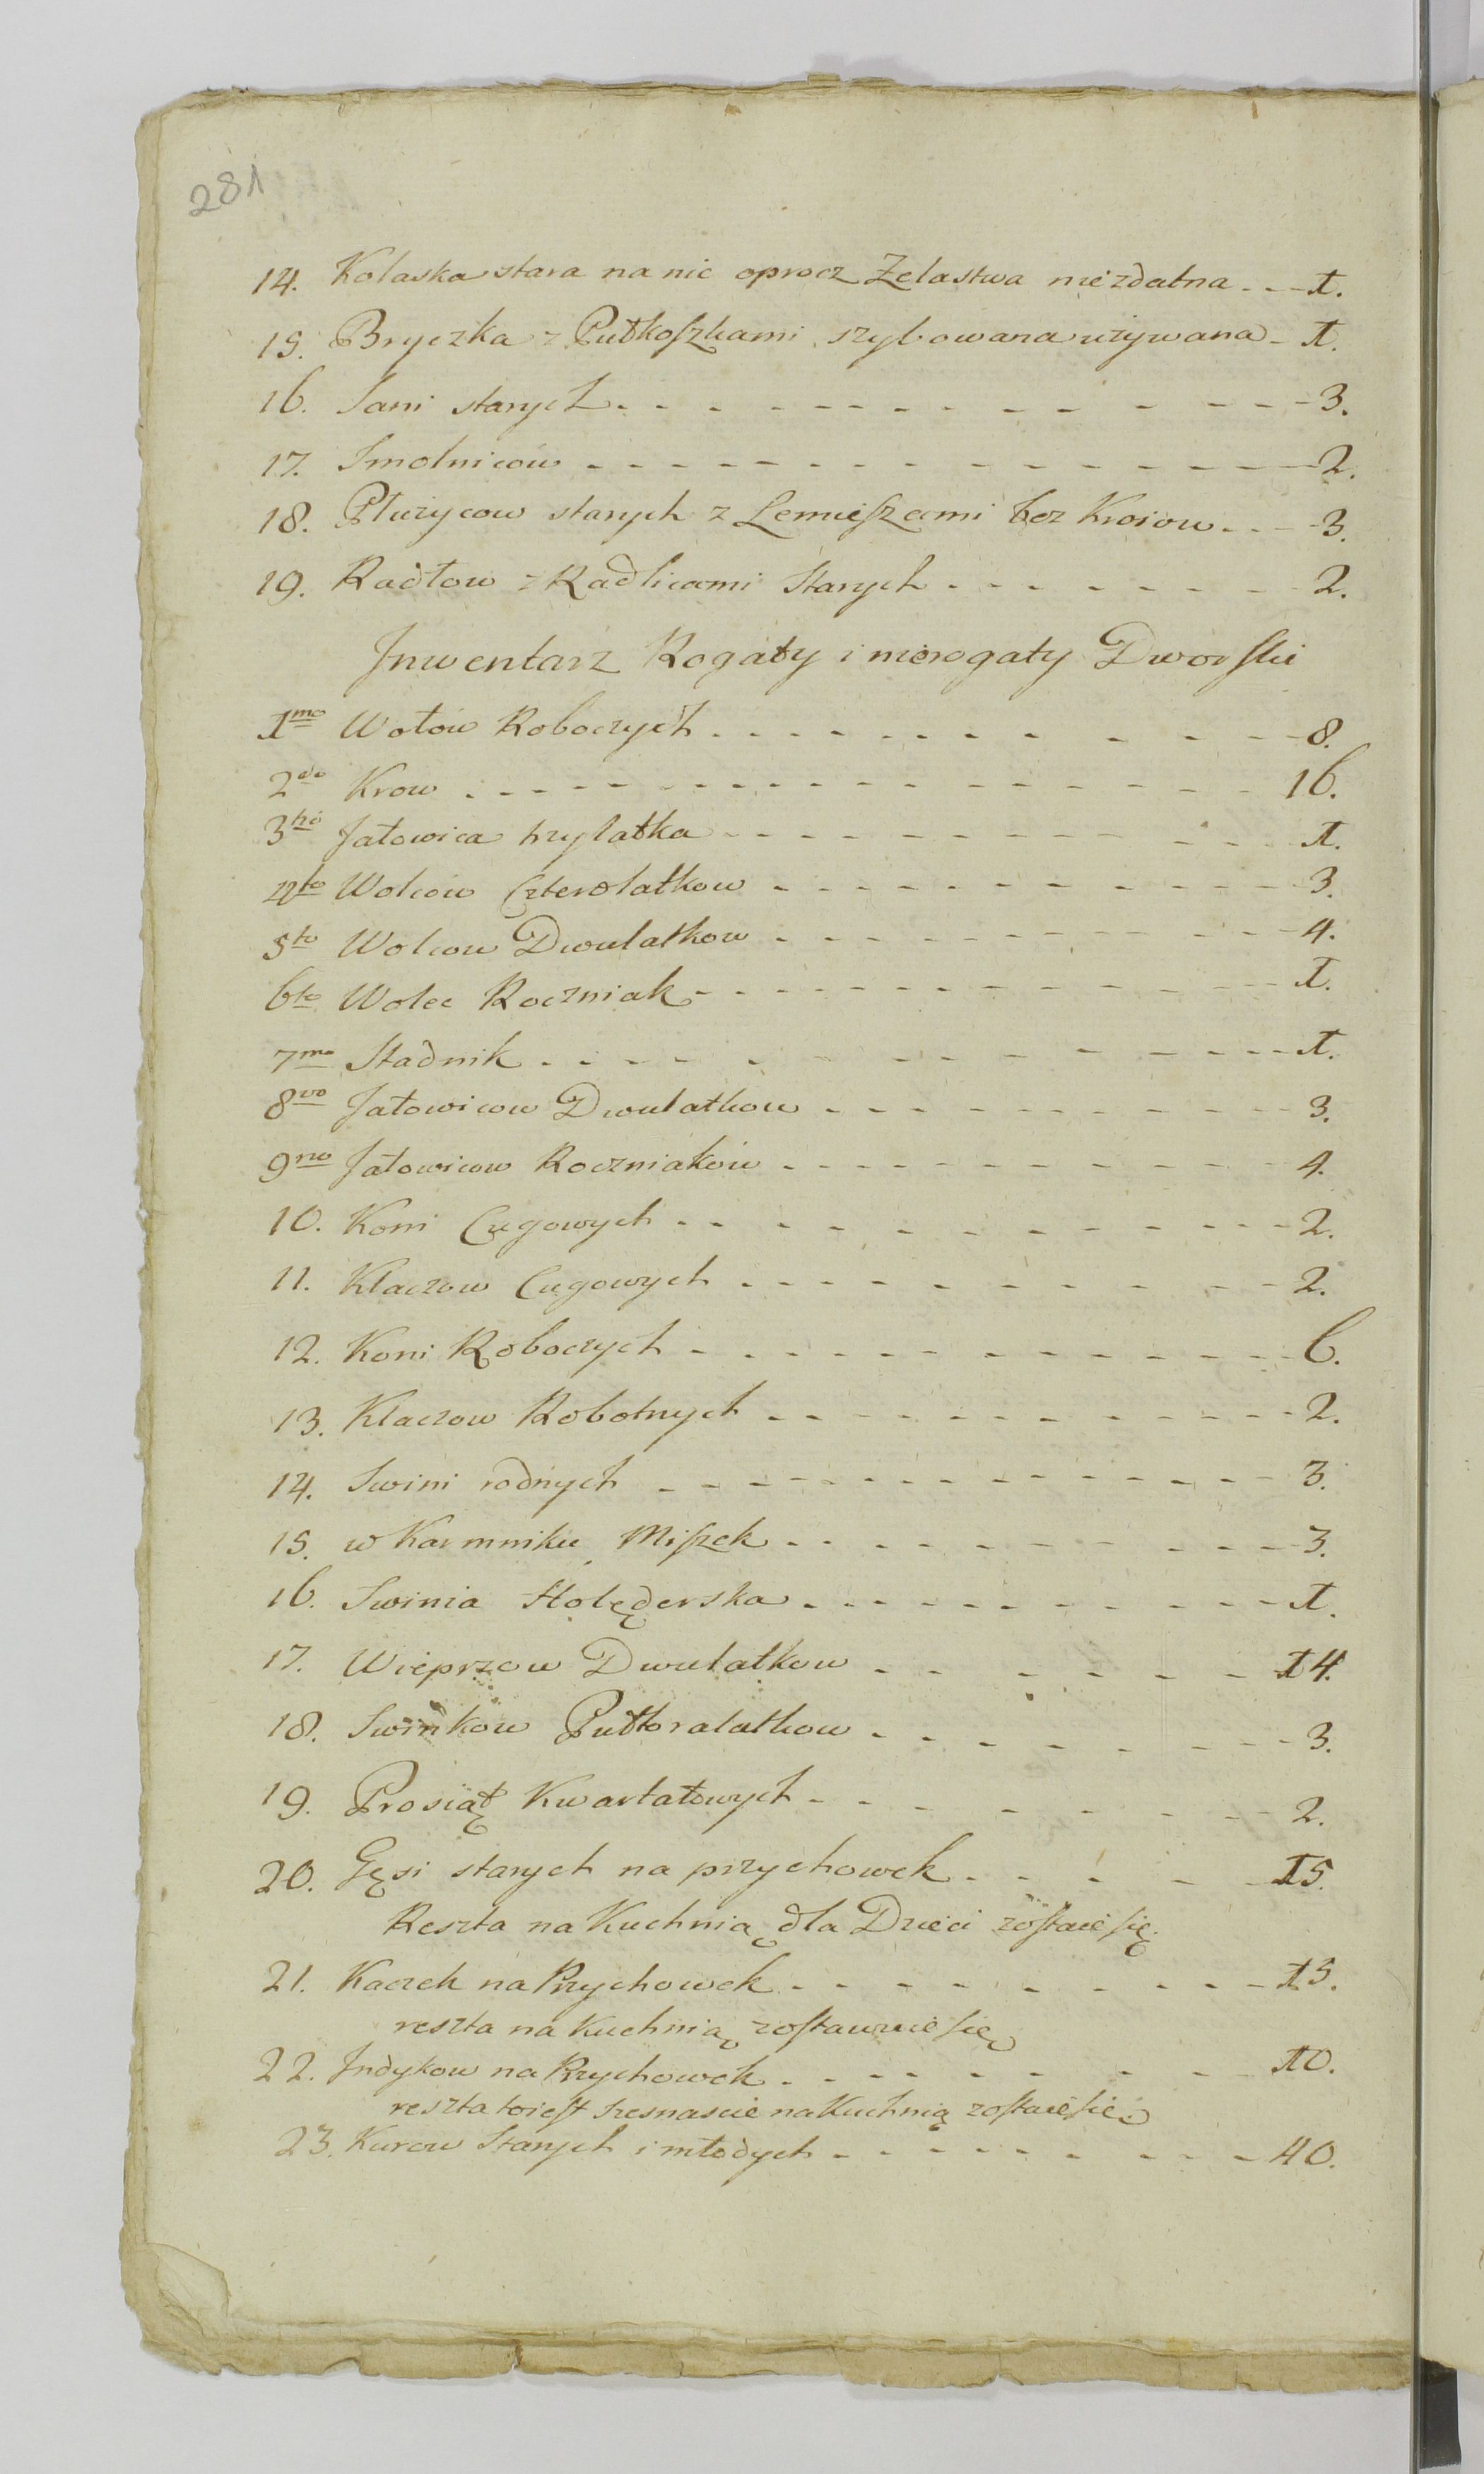 281
14. Kolaska stara na nic oprocz Żelastwa niezdatna - - - 1.
15. Bryczka z Pułkoszkami szybowana używana - 1.
16. Sani starych - - - 3.
17. Smolnicow - - - 2.
18. Płużycow starych z Lemieszami bez Kroiow - - - 3.
19. Radłow z Radlicami Starych - - - 2.
Jnwentarz Rogaty i nierogaty Dworski
1mo Wołow Roboczych - - - 8.
2do Krow - - - 16.
3tio Jałowica trzylatka - - - 1.
4to Wolcow Czterolatkow - - - 3.
5to Wolcow Dwulatkow - - - 4.
6to Wolec Roczniak - - - 1.
7mo Stadnik - - - 1.
8vo Jałowicow Dwulatkow - - - 3.
9no Jałowicow Roczniakow - - - 4.
10. Koni Cugowych - - - 2.
11. Klaczow Cugowych - - - 2.
12. Koni Roboczych - - - 6.
13. Klaczow Robotnych - - - 2.
14. Swini rodnych - - - 3.
15. w Karmniku Miszek - - - 3.
16. Swinia Holęderska - - - 1.
17. Wieprzow Dwulatkow - - - 14.
18. Swinkow Pułtoralatkow - - - 3.
19. Prosiąt Kwartałowych - - - 2.
20. Gęsi starych na przychowek - - - 15.
Reszta na Kuchnią dla Dzieci zostaie się
21. Kaczek na Przychowek - - - 15.
reszta na Kuchnią zostawuie się
22. Jndykow na Przychowek - - - 10.
reszta to iest szesnascie na Kuchnią zostaie się
23. Kurow Starych i młodych - - - 40.